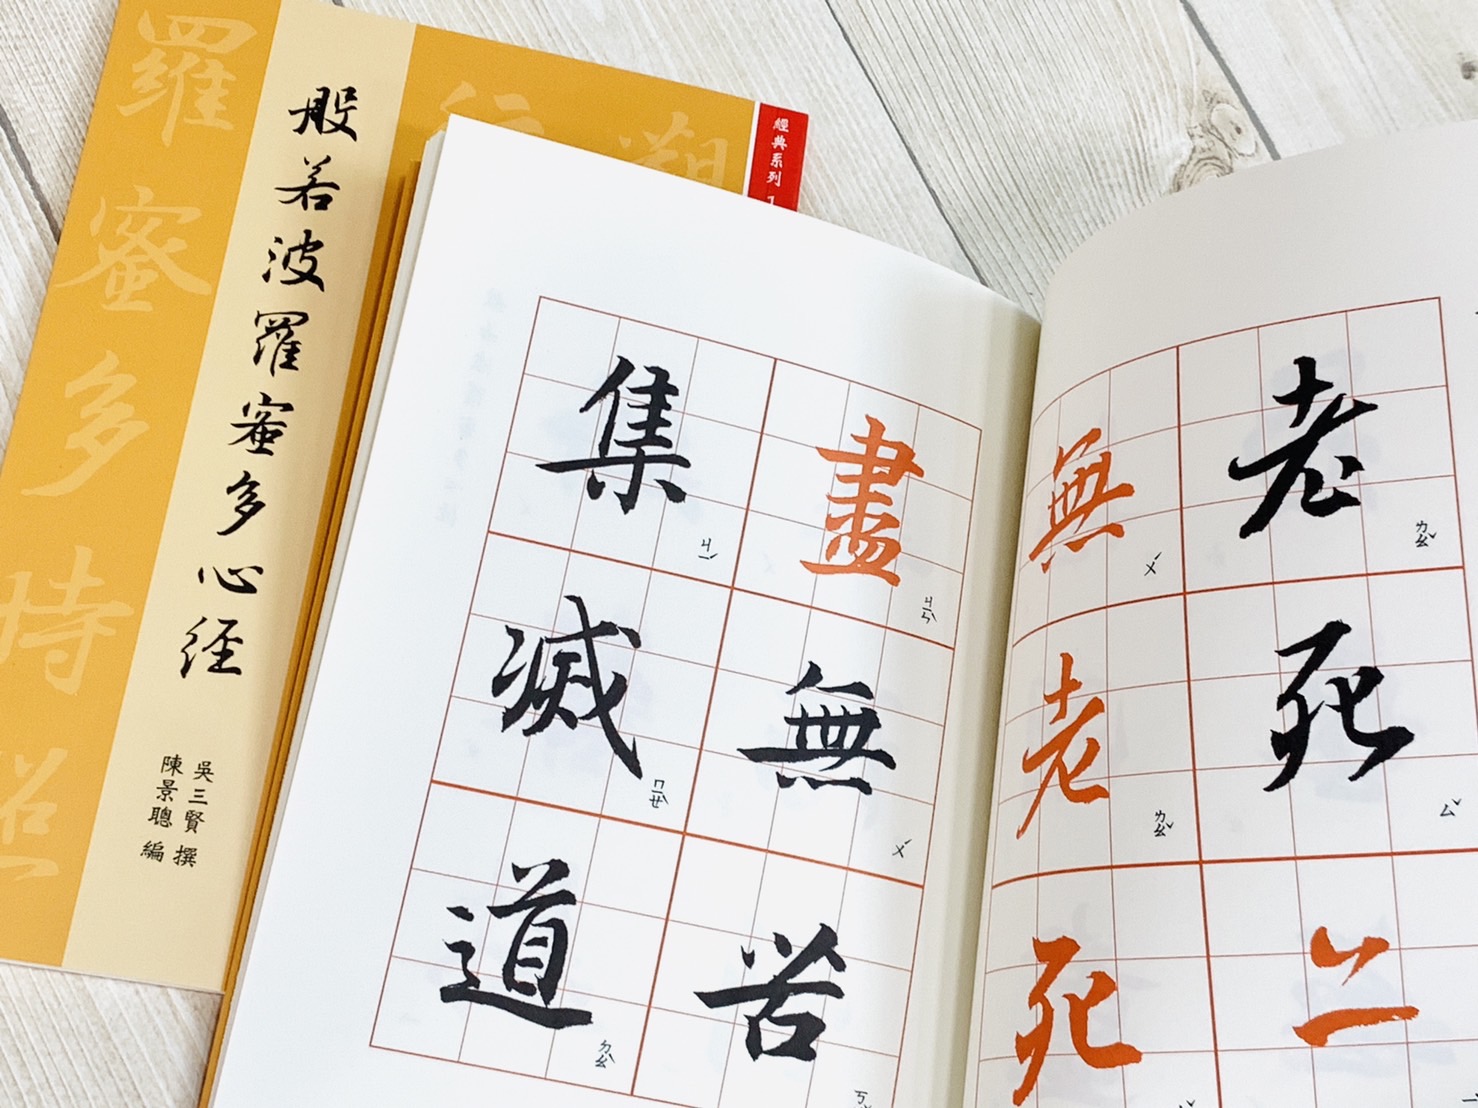 般若波羅蜜多心經
吳三賢 撰
陳景聰 編
經典系列 1
羅蜜多時照
行
老死亦
ㄌㄠˇ
ㄙˇ
無老死
ㄨˊ
ㄌㄠˇ
盡無苦
ㄐㄧㄣˋ
ㄨˊ
ㄎㄨˇ
集滅道
ㄐㄧˊ
ㄇㄧㄝˋ
ㄉㄠˋ